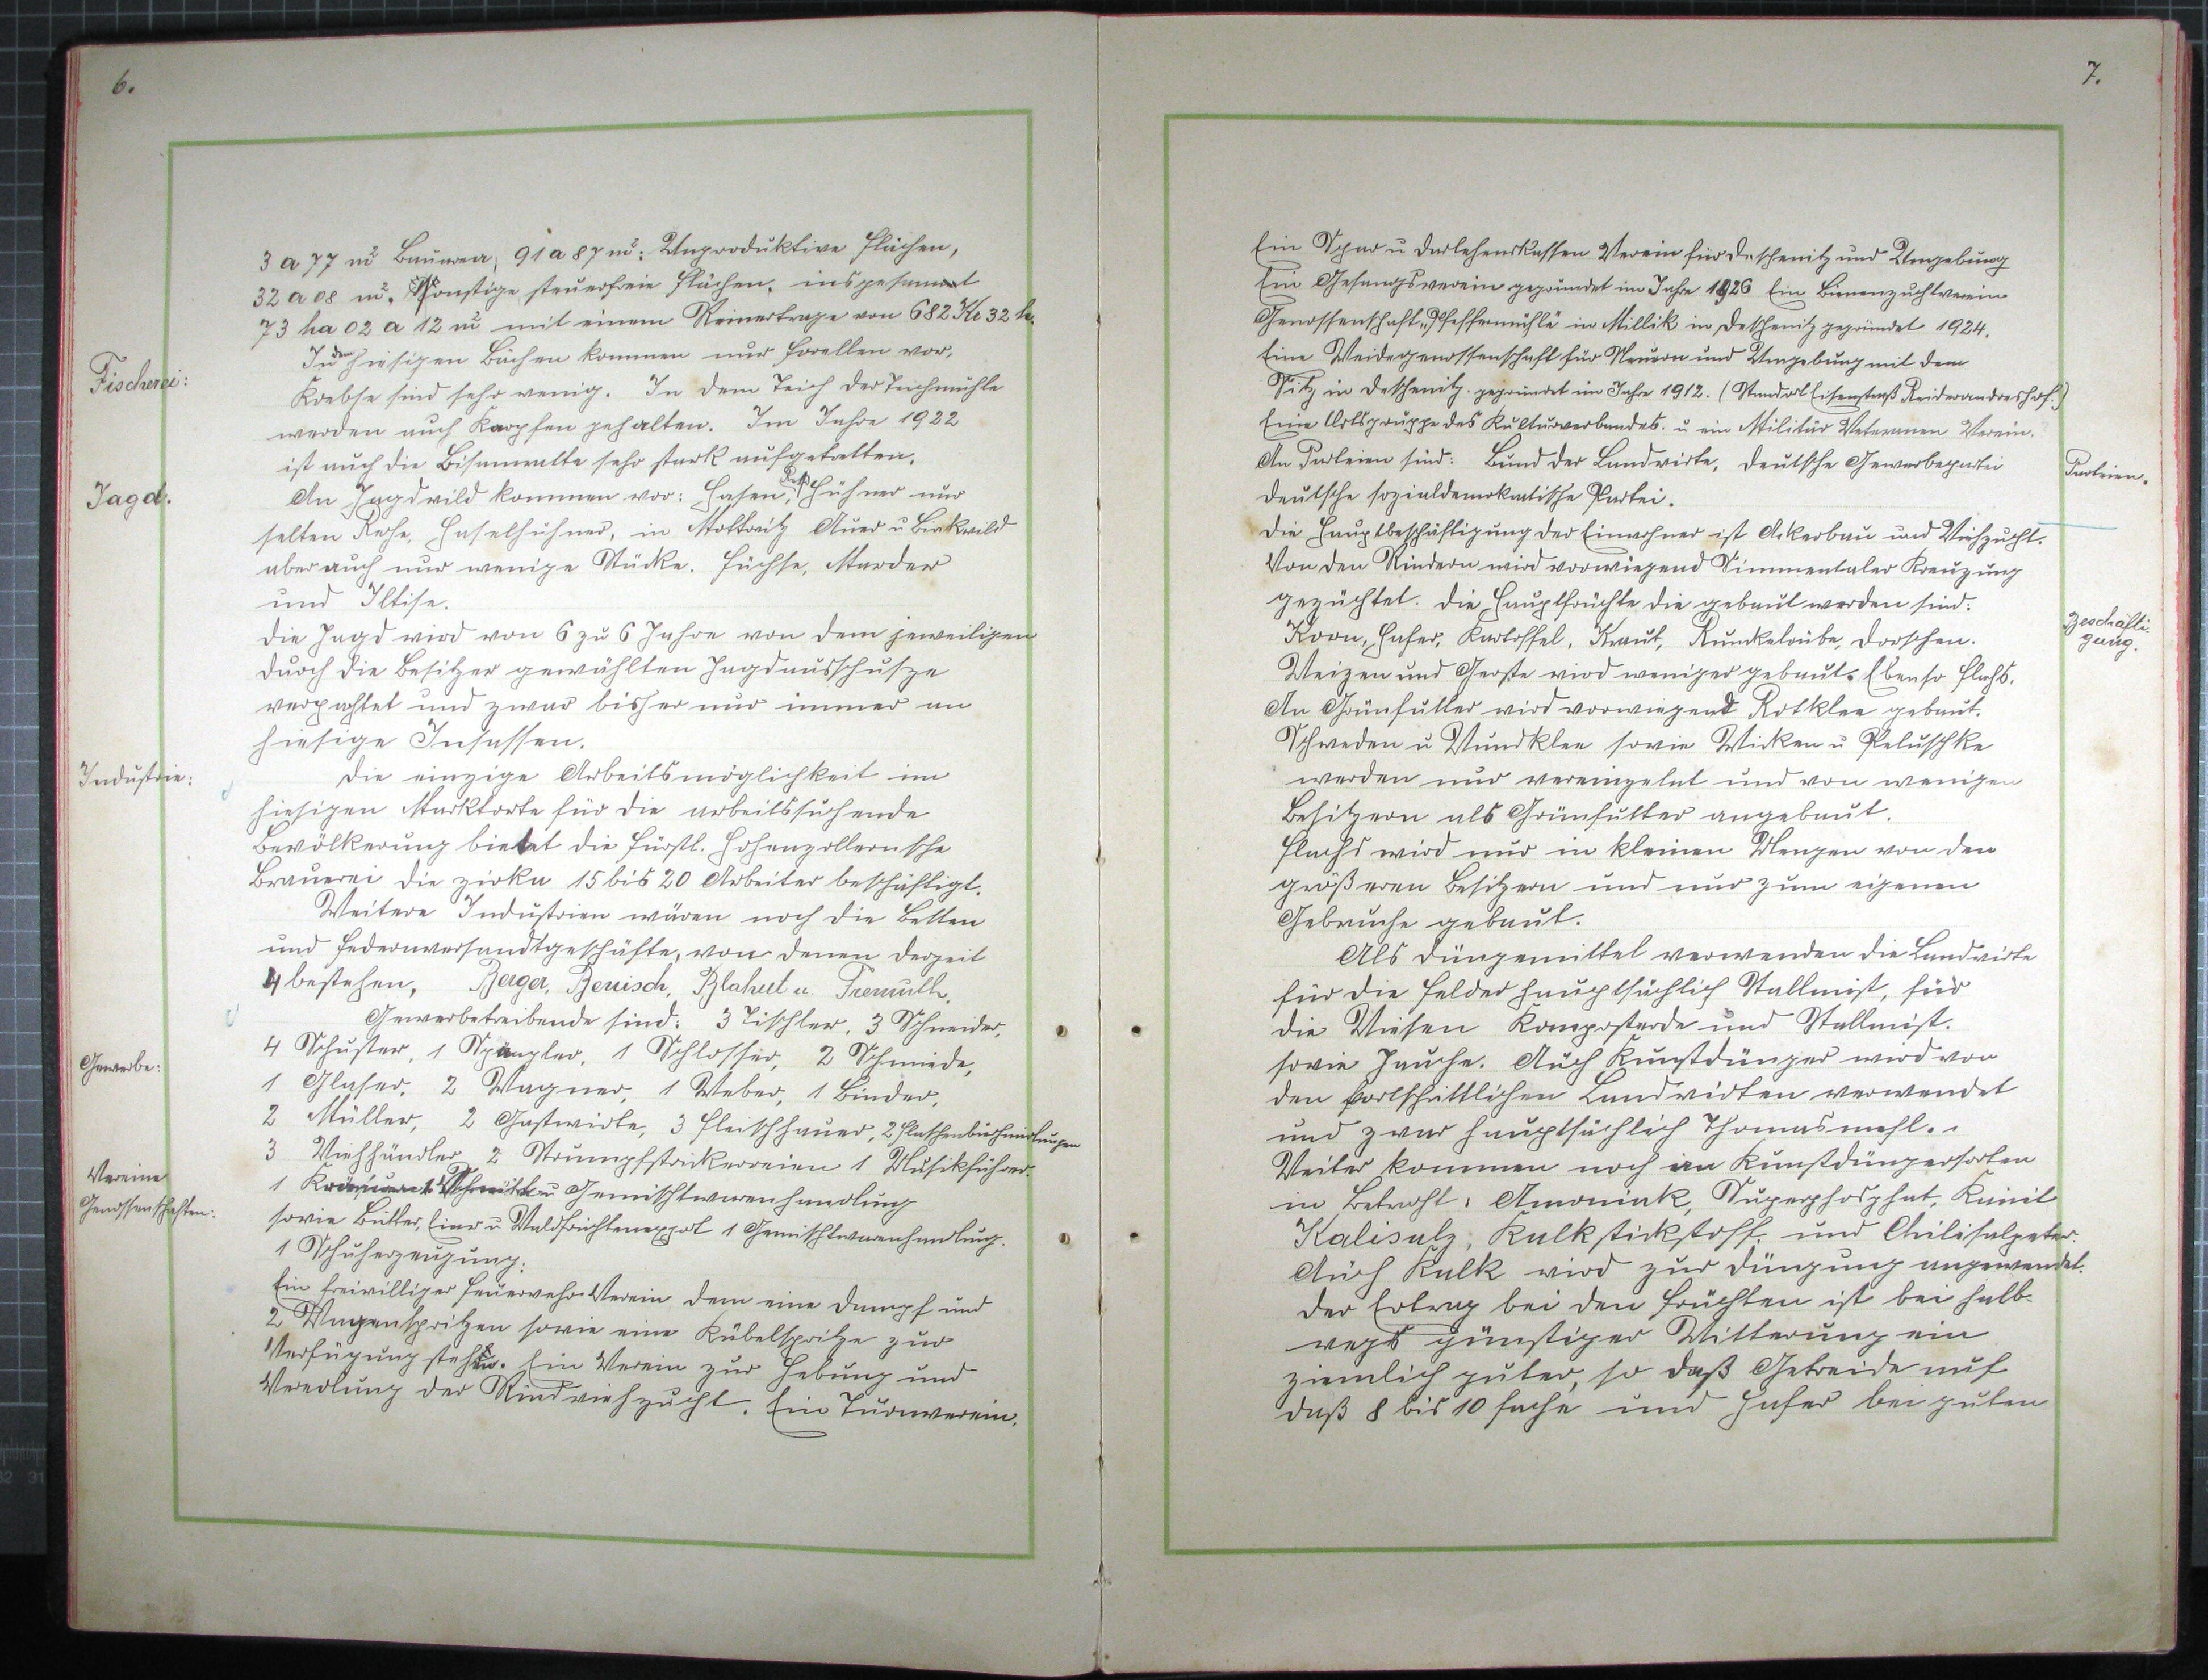 6.
3 a 77 m² Bauarea, 91 a 87 m²: Unproduktive Flächen,
32 a 08 m². Sonstige steuerfreie Flächen. insgesammt
73 ha 02 a 12 m² mit einem Reinertrage von 682 Kc 32 h.
Fischerei:
In den hiesigen Bächen kommen nur Forellen vor,
Krebse sind sehr wenig. In dem Teich der Teichmühle
werden auch Karpfen gehalten. Im Jahre 1922
ist auch die Bisamratte sehr stark aufgetretten.
Jagd.
An Jagdwild kommen vor: Hasen, Reb Hühner nur
selten Rehe, Haselhühner, in Stattwitz Auer u Birkwild
aber auch nur wenige Stücke. Füchse, Marder
und Iltise.
Die Jagd wird von 6 zu 6 Jahre von dem jeweiligen
durch die Besitzer gewählten Jagdausschusze
verpachtet und zwar bisher nur immer an
hiesige Insassen.
Industrie:
Die einzige Arbeitsmöglichkeit im
hiesigen Marktorte für die arbeitssuchende
Bevölkerung bietet die fürstl. Hohenzollernsche
Brauerei die zirka 15 bis 20 Arbeiter beschäftigt.
Weitere Industrien wären noch die Betten
und Federnversandtgeschäfte, von denen derzeit
4 bestehen, Berger, Benisch, Blahut u. Tremulh.
Gewerbe:
Gewerbetreibende sind: 3 Tischler, 3 Schneider,
4 Schuster, 1 Spängler, 1 Schlosser, 2 Schmiede,
1 Glaser, 2 Wagner, 1 Weber, 1 Binder,
2 Müller, 2 Gastwirte, 3 Fleischhauer, 2 Flaschenbierhandlungen
3 Viehhändler 2 Strumpfstrickereien 1 Musikführer.
1 u Gemischtwarenhandlung
sowie Butter, Eier u Waldfrüchtenexport 1 Gemischtwarenhandlung.
1 Schuherzeugung.
Vereine
Genossenschaften:
Ein freiwilliger Feuerwehr-Verein dem eine Dampf und
2 Wagenspritzen sowie eine Kübelspritze zur
Verfügung steht. Ein Verein zur Hebung und
Veredlung der Rindviehzucht. Ein Turnverein.
7.
Ein Spar u Darlehenskassen Verein für Deschenitz und Umgebung
Ein Gesangsverein gegründet im Jahre 1926 Ein Bienenzuchtverein
Genossenschaft „Pfeffermühle in Millik in Deschenitz gegründet 1924.
Eine Weidegenossenschaft für Neuern und Umgebung mit dem
Sitz in Deschenitz gegründet im Jahre 1912. (Standort Eisenstraß
Eine Ortsgruppe des Kulturverbandes. u ein Militär Veteranen Verein.
Parteien.
An Parteien sind: Bund der Landwirte, Deutsche Gewerbepartei
Deutsche sozialdemokratische Partei.
Die Hauptbeschäftigung der Einwohner ist Ackerbau und Viehzucht.
Von den Rindern wird vorwiegend Simmentaler Kreuzung
gezüchtet. Die Hauptfrüchte die gebaut werden sind:
Beschäfti-
gung.
Korn, Hafer, Kartoffel, Kraut, Runkelrübe, Dorschen.
Weizen und Gerste wird weniger gebaut. Ebenso Flachs.
An Grünfutter wird vorwiegend Rotklee gebaut.
Schweden u Wundklee sowie Wicken u Peluschke
werden nur vereinzelnt und von wenigen
Besitzern als Grünfutter angebaut.
Flachs wird nur in kleinen Mengen von den
größeren Besitzern und nur zum eigenen
Gebrauche gebaut.
Als Düngemittel verwenden die Landwirte
für die Felder hauptsächlich Stallmist, für
die Wiesen Komposterde und Stallmist.
sowie Jauche. Auch Kunstdünger wird von
den fortschrittlichen Landwirten verwendet
und zwar hauptsächlich Thomasmehl.
Weiter kommen noch an Kunstdüngersorten
in Betracht: Amoniak, Superphosphat, Kainit
Kalisalz, Kalkstickstoff, und Chilisalpeter.
Auch Kalk wird zur Düngung angewendet.
Der Ertrag bei den Früchten ist bei halb-
wegs günstiger Witterung ein
ziemlich guter, so daß Getreide auf
daß 8 bis 10 fache und Hafer bei guten